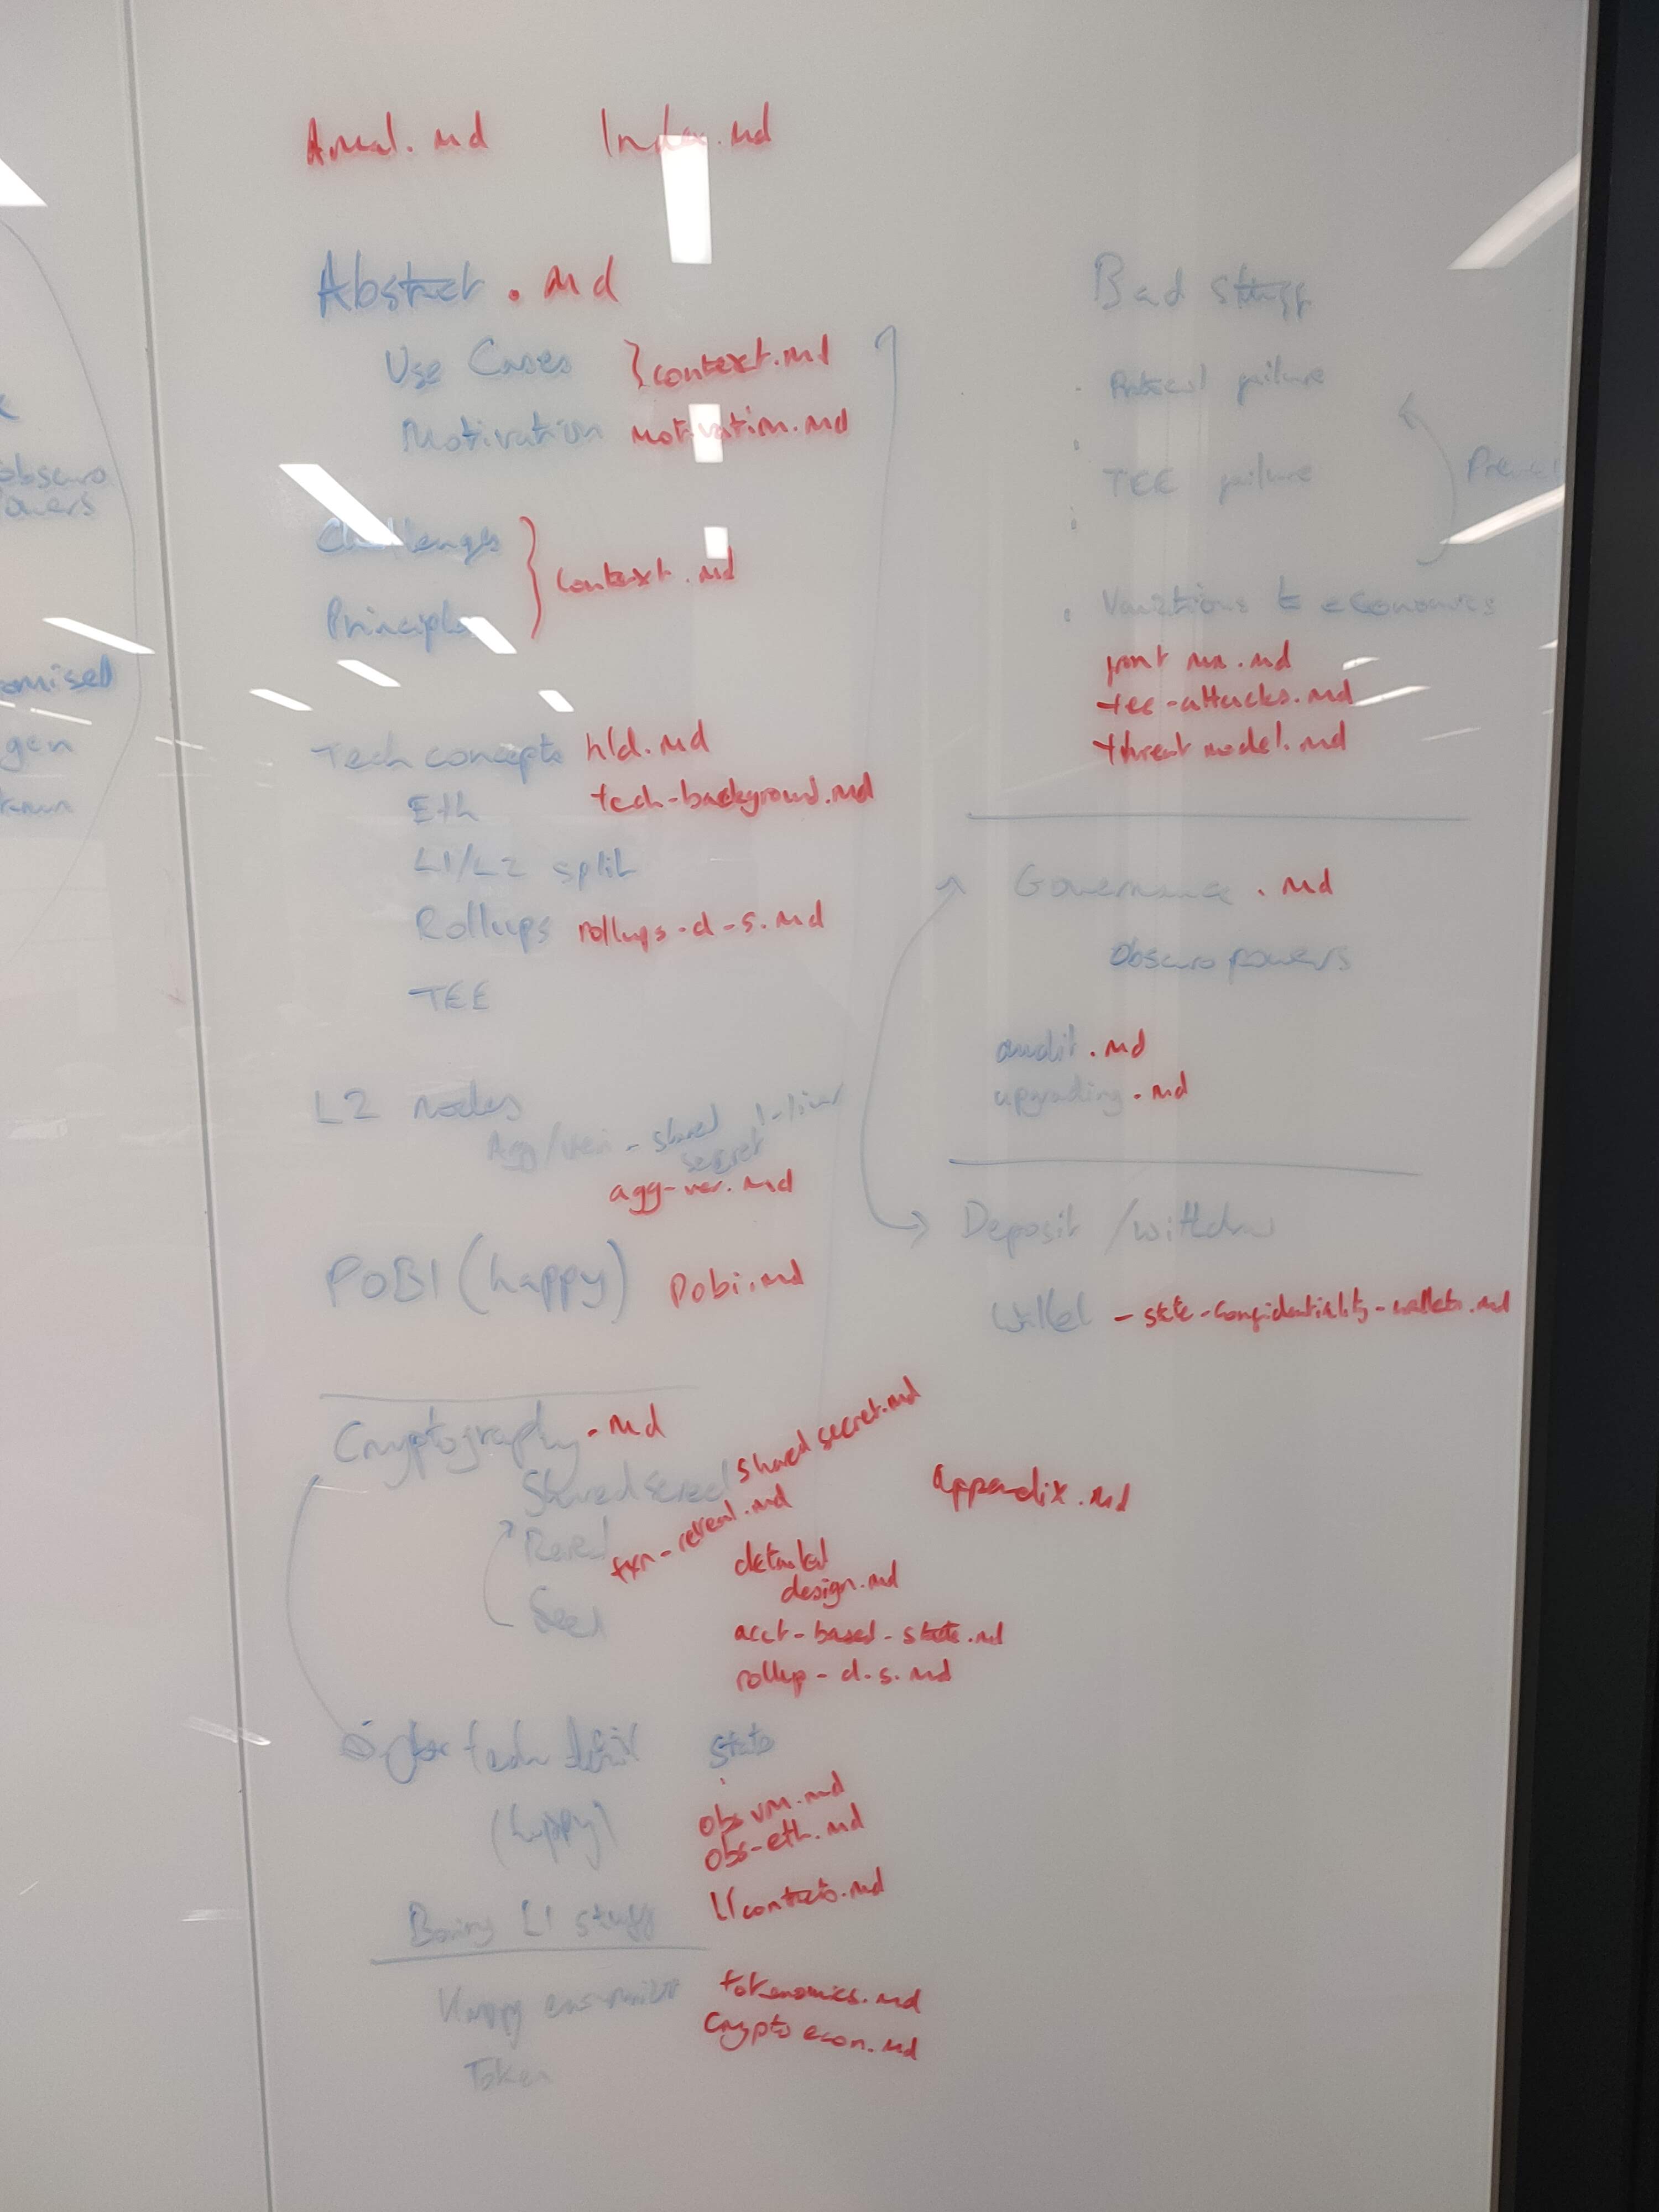 obscuro
owers
omised
gen
Index.md
Abstract.md
Use Cases }context.md
Motivation motivation.md
Challenges
Principles } context.md
Tech concepts hld.md
Eth tech-background.md
L1/L2 split
Rollups rollups-d-s.md
TEE
L2 nodes
Agg/Veri - shared secret 1-liner
agg-ver.md
POBI (happy) Pobi.md
Cryptography.md
Shared secret shared secret.md
Reveal txn-reveal.md
Seed
detailed
design.md
acct-based-state.md
rollup-d-s.md
tech detail state
(happy)
obs vm.md
obs-eth.md
Boring L1 stuff L1contracts.md
Happy economics tokenomics.md
Crypto econ.md
Token
Bad stuff
Protocol failure
TEE failure
Variations to economics
tee-attacks.md
threat model.md
Governance.md
Obscuro powers
audit.md
upgrading.md
Deposit/withdraw
Wallet - state-confidentiality-wallets.md
appendix.md